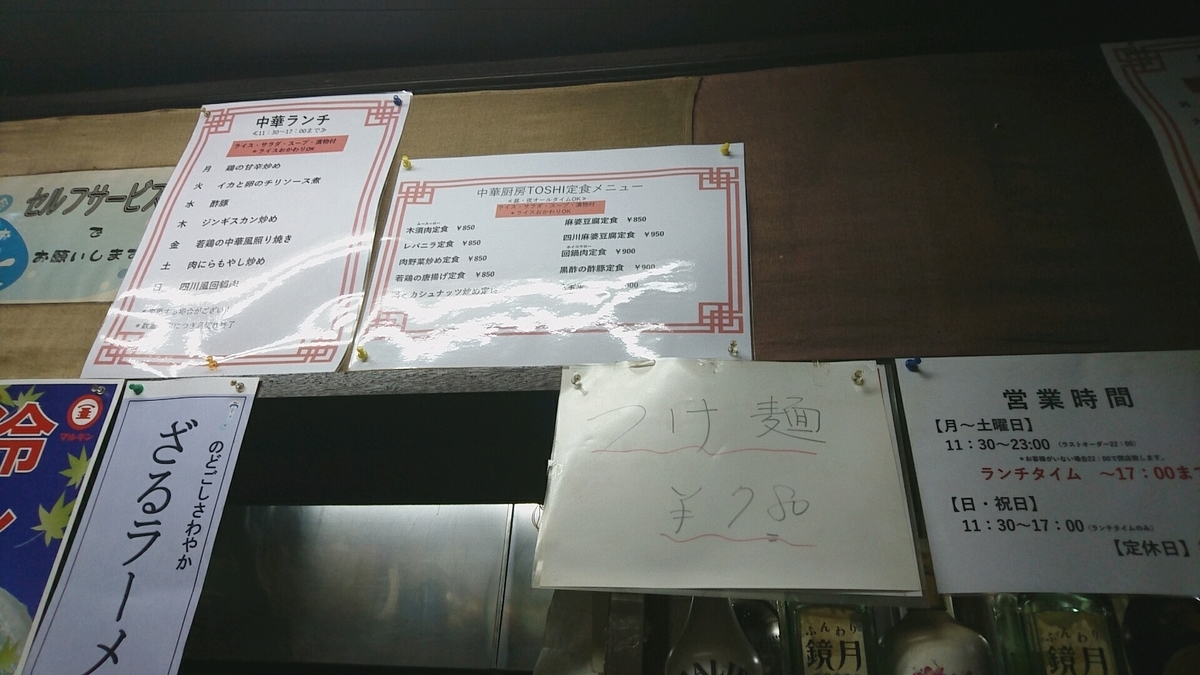 中華ランチ
≪11：30～17：00まで≫
ライス・サラダ・スープ・漬物付
＊ライスおかわりOK
月 鶏の甘辛炒め
火 イカと卵のチリソース煮
水 酢豚
木 ジンギスカン炒め
金 若鶏の中華風照り焼き
土 肉にらもやし炒め
日 四川風回鍋肉
中華厨房TOSHI定食メニュー
≪昼・夜オールタイムOK≫
ライス・サラダ・スープ・漬物付
＊ライスおかわりOK
木須肉定食 ￥850
レバニラ定食 ￥850
肉野菜炒め定食 ￥850
若鶏の唐揚げ定食 ￥850
カシュナッツ炒め定
麻婆豆腐定食 ￥850
四川麻婆豆腐定食 ￥950
回鍋肉定食 ￥900
黒酢の酢豚定食 ￥900
セルフサービス
で
お願いします
冷
マルキン
のどごしさわやか
ざるラーメ
つけ麺
￥780
営業時間
【月～土曜日】
11：30～23:00（ラストオーダー22：00）
＊お客様がいない場合22：00で閉店致します。
ランチタイム ～17：00ま
【日・祝日】
11：30～17：00（ランチタイムのみ）
【定休日】
ふんわり
鏡月
ふんわり
鏡月